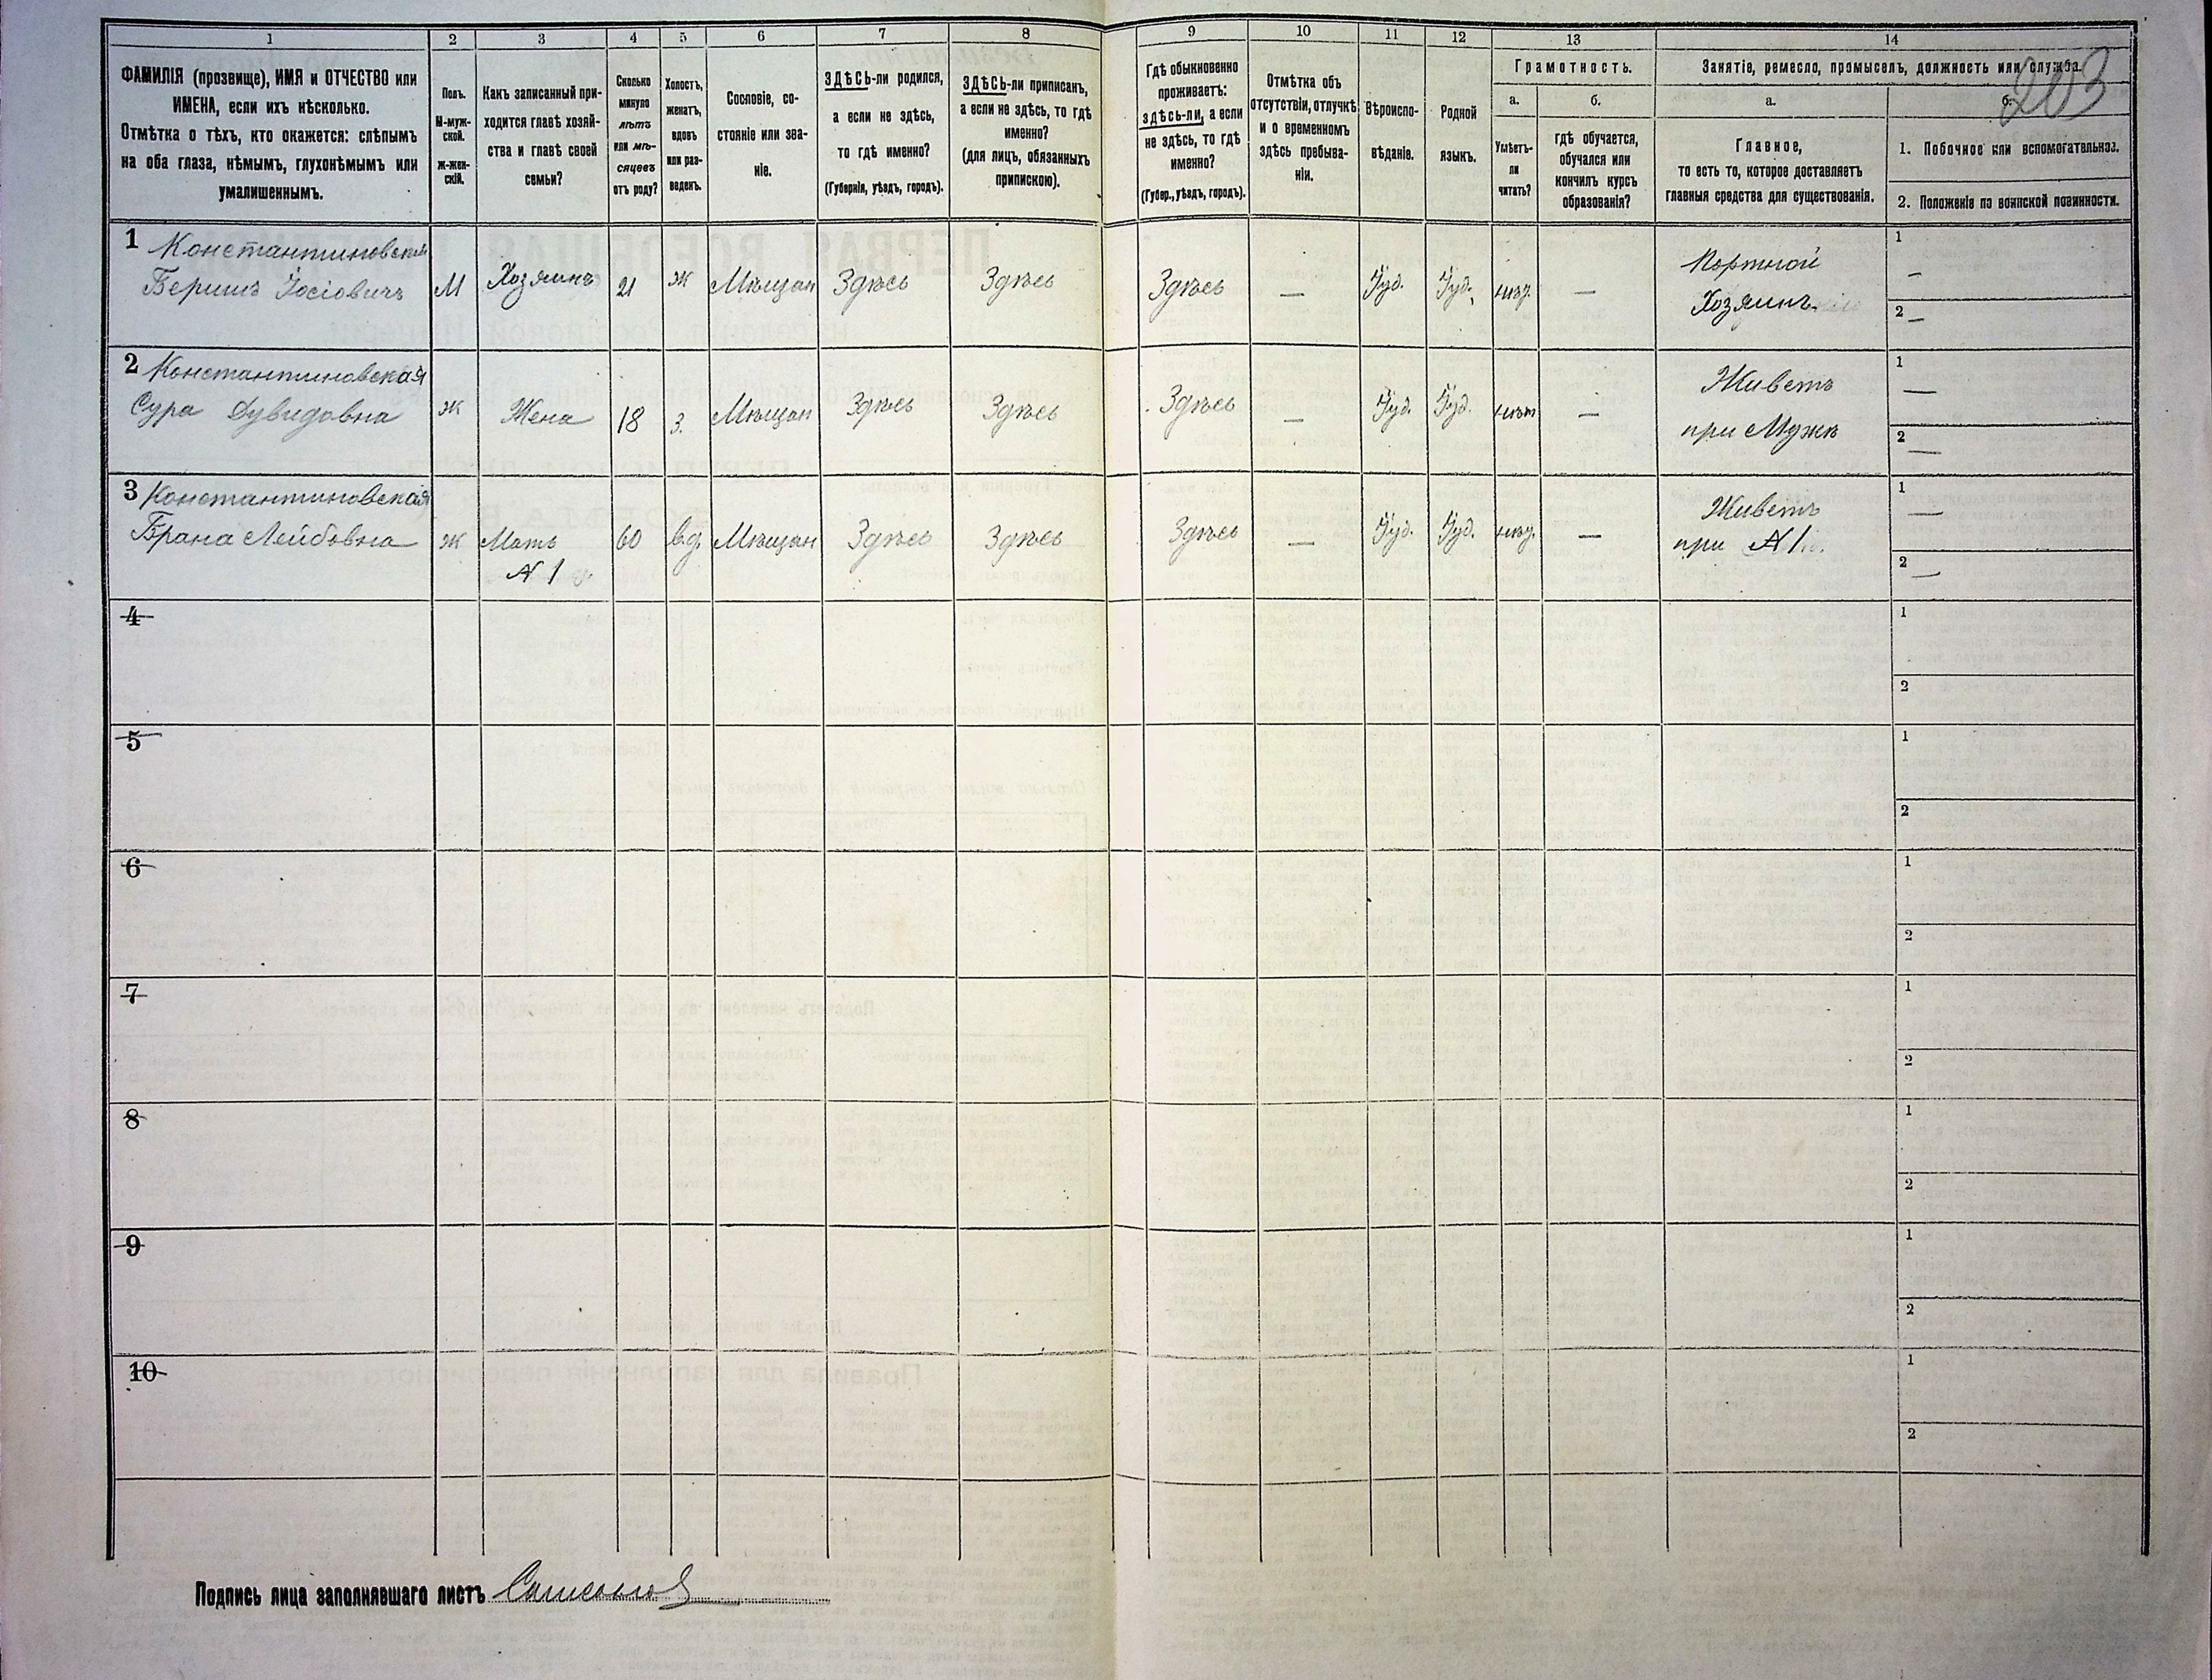 1 2 3 4 5 6 7 8 9 10 11 12 13 14
203
ФАМИЛІЯ (прозвище), ИМЯ и ОТЧЕСТВО или
ИМЕНА, если ихъ нѣсколько.
Отмѣтка о тѣхъ, кто окажется: слѣпымъ
на оба глаза, нѣмымъ, глухонѣмымъ или
умалишеннымъ.
Полъ.
М-муж-
ской.
ж-жен-
скій.
Какъ записанный при-
ходится главѣ хозяй-
ства и главѣ своей
семьи?
Сколько
минуло
лѣтъ
или мѣ-
сяцевъ
отъ роду?
Холостъ,
женатъ,
вдовъ
или раз-
веденъ.
Сословіе, со-
стояніе или зва-
ніе.
ЗДѢСЬ-ли родился,
а если не здѣсь,
то гдѣ именно?
(Губернія, уѣздъ, городъ).
ЗДѢСЬ-ли приписан,
а если не здѣсь, то гдѣ
именно?
(для лицъ, обязанныхъ
припискою).
Гдѣ обыкновенно
проживаетъ:
здѣсь-ли, а если
не здѣсь, то гдѣ
именно?
(Губер., уѣздъ, городъ).
Отмѣтка объ
отсутствіи, отлучкѣ
и о временномъ
здѣсь пребыва-
ніи.
Вѣроиспо-
вѣданіе.
Родной
языкъ.
Грамотность.
а.
Умѣетъ-
ли
читать?
б.
гдѣ обучается,
обучался или
кончилъ курсъ
образованія?
Занятіе, ремесло, промыселъ, должность или служба.
а.
Главное,
то есть то, которое доставляетъ
главныя средства для существованія.
б.
1. Побочное или вспомогательное.
2. Положеніе по воинской повинности.
1 Константиновскій
Беришъ Іосіовичъ М Хозяинъ 21 Ж Мѣщан Здѣсь Здѣсь Здѣсь — Іуд. Іуд. — Портной
Хозяинъ
1 —
2 —
2 Константиновская
Сура Дувидовна ж Жена 18 з. Мѣщан Здѣсь Здѣсь Здѣсь — Іуд. Іуд. нѣт — Живетъ
при Мужѣ
1 —
2 —
3 Константиновская
Брана Лейбовна ж Мать
N 1
60 вд. Мѣщан Здѣсь Здѣсь Здѣсь — Іуд. Іуд. — Живетъ
при N 1
1 —
2 —
4
1
2
5
1
2
6
1
2
7
1
2
8
1
2
9
1
2
10
1
2
Подпись лица заполнявшаго листъ